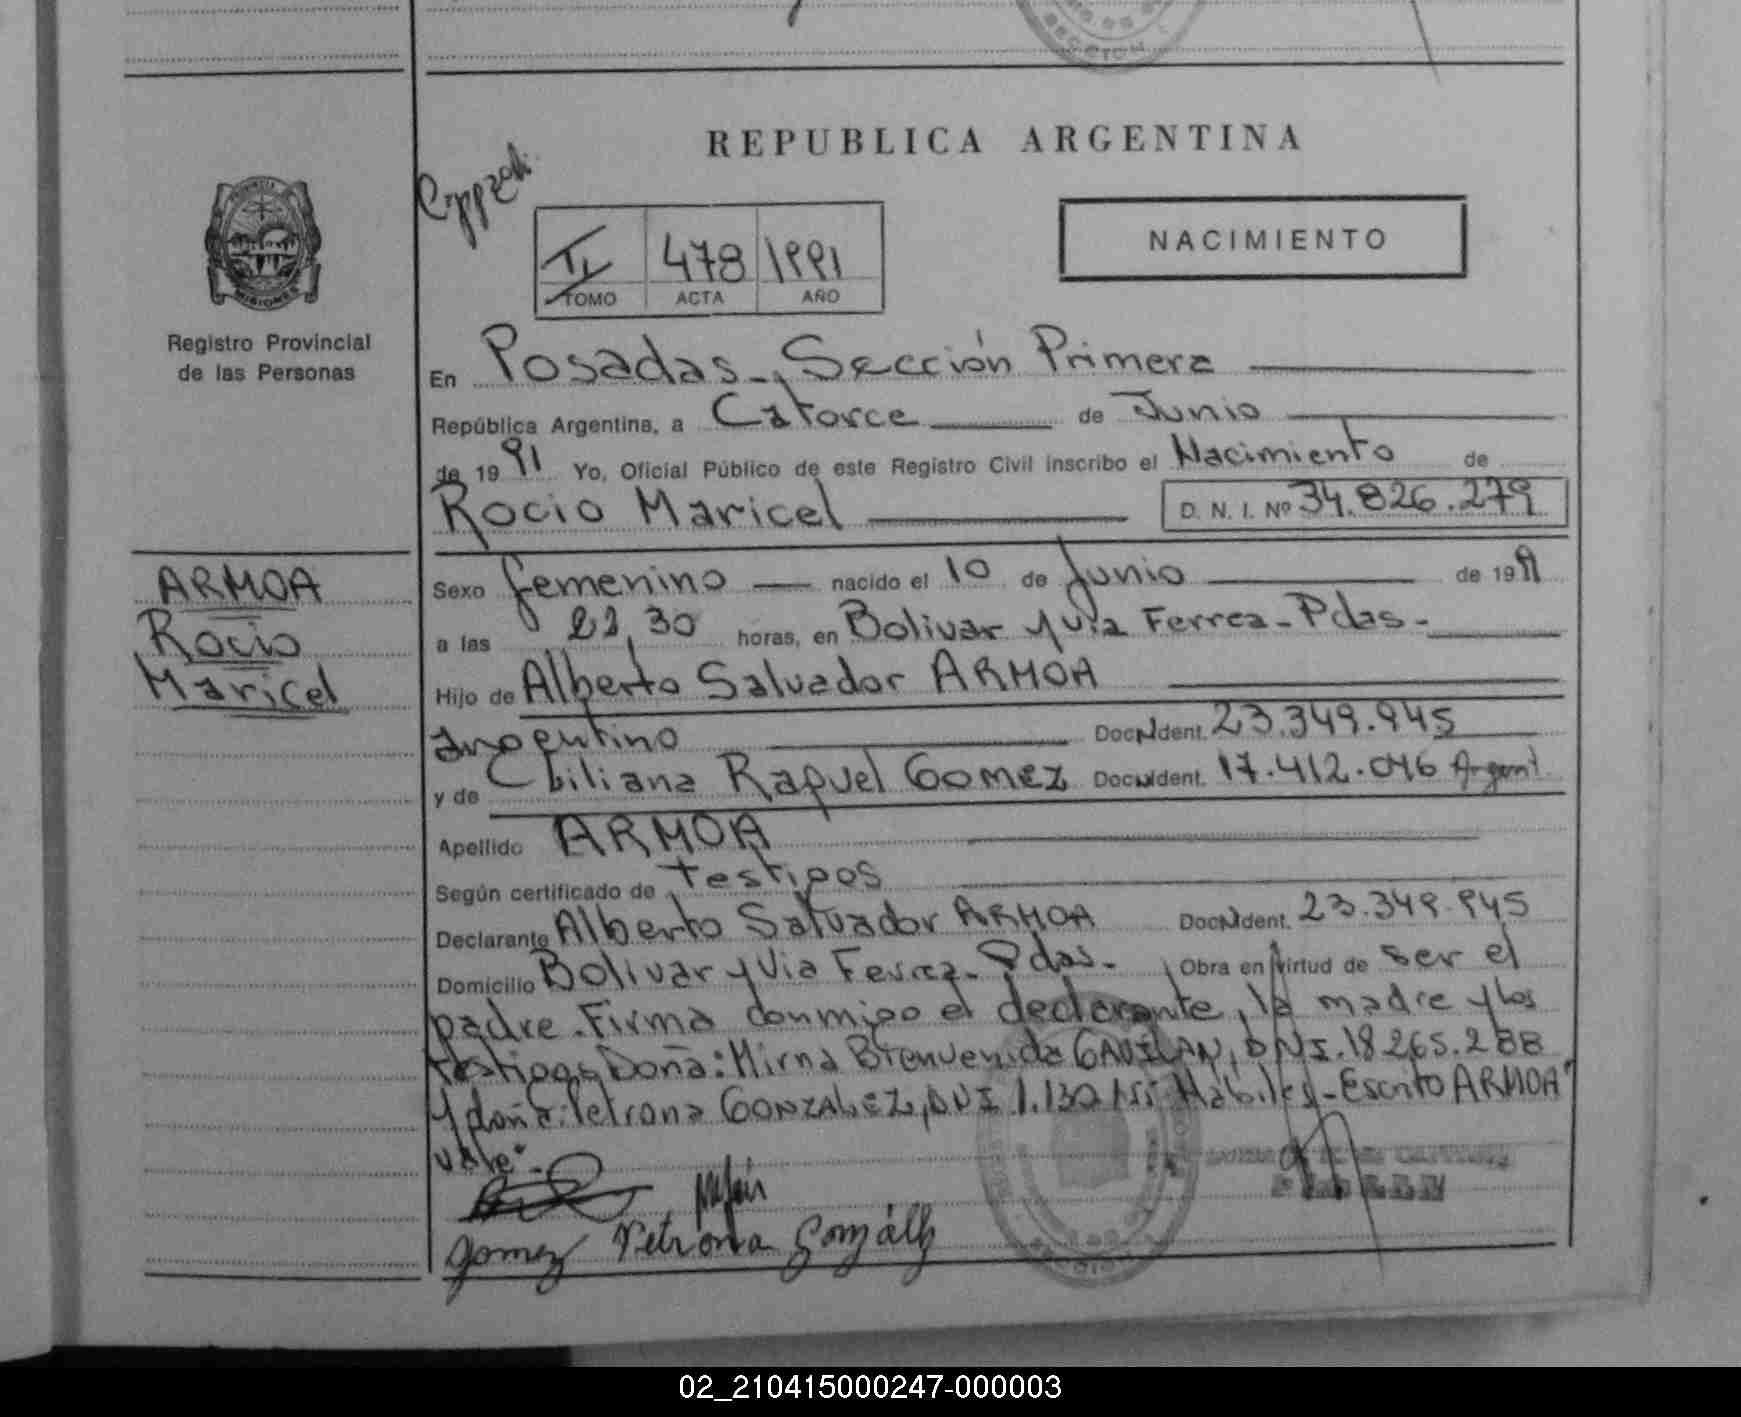 REPUBLICA ARGENTINA
NACIMIENTO
478 1991
TOMO ACTA AÑO
PROVINCIA
MISIONES
Registro Provincial
de las Personas
En Posadas, Sección Primera
República Argentina, a Catorce de Junio
de 1991 Yo, Oficial Público de este Registro Civil inscribo el Nacimiento de
Rocio Maricel D. N. I. Nº 34.826.279
ARMOA
Rocio
Maricel
Sexo femenino nacido el 10 de Junio de 1991
a las 22,30 horas, en Bolivar y Via Ferrea - Pdas -
Hijo de Alberto Salvador ARMOA
Argentino Doc. Ident. 23.349.945
y de Liliana Raquel Gomez Doc. Ident. 17.412.046 Argent.
Apellido ARMOA
Según certificado de testigos
Declarante Alberto Salvador ARMOA Doc. Ident. 23.349.945
Domicilio Bolivar y Via Ferrea - Pdas - Obra en virtud de ser el
padre. Firma conmigo el declarante, la madre y los
testigos Doña: Mirna Bienvenida GAVILAN, DNI. 18.265.288
y doña: Petrona GONZALEZ, DNI 1.130.155 Hábiles - Escrito ARMOA"
vale" -
Gomez Petrona González
SECCION
02_210415000247-000003